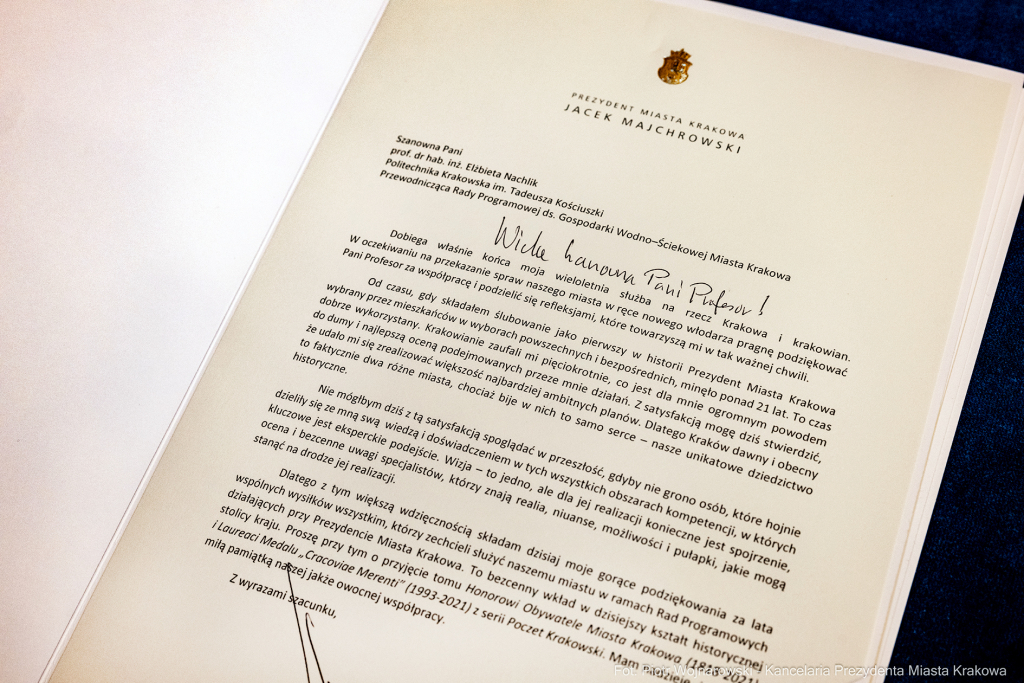 PREZYDENT MIASTA KRAKOWA
JACEK MAJCHROWSKI
Szanowna Pani
prof. dr hab. inż. Elżbieta Nachlik
Politechnika Krakowska im. Tadeusza Kościuszki
Przewodnicząca Rady Programowej ds. Gospodarki Wodno–Ściekowej Miasta Krakowa
Wielce Szanowna Pani Profesor!
Dobiega właśnie końca moja wieloletnia służba na rzecz Krakowa i krakowian.
W oczekiwaniu na przekazanie spraw naszego miasta w ręce nowego włodarza pragnę podziękować
Pani Profesor za współpracę i podzielić się refleksjami, które towarzyszą mi w tak ważnej chwili.
Od czasu, gdy składałem ślubowanie jako pierwszy w historii Prezydent Miasta Krakowa
wybrany przez mieszkańców w wyborach powszechnych i bezpośrednich, minęło ponad 21 lat. To czas
dobrze wykorzystany. Krakowianie zaufali mi pięciokrotnie, co jest dla mnie ogromnym powodem
do dumy i najlepszą oceną podejmowanych przeze mnie działań. Z satysfakcją mogę dziś stwierdzić,
że udało mi się zrealizować większość najbardziej ambitnych planów. Dlatego Kraków dawny i obecny
to faktycznie dwa różne miasta, chociaż bije w nich to samo serce – nasze unikatowe dziedzictwo
historyczne.
Nie mógłbym dziś z tą satysfakcją spoglądać w przeszłość, gdyby nie grono osób, które hojnie
dzieliły się ze mną swą wiedzą i doświadczeniem w tych wszystkich obszarach kompetencji, w których
kluczowe jest eksperckie podejście. Wizja – to jedno, ale dla jej realizacji konieczne jest spojrzenie,
ocena i bezcenne uwagi specjalistów, którzy znają realia, niuanse, możliwości i pułapki, jakie mogą
stanąć na drodze jej realizacji.
Dlatego z tym większą wdzięcznością składam dzisiaj moje gorące podziękowania za lata
wspólnych wysiłków wszystkim, którzy zechcieli służyć naszemu miastu w ramach Rad Programowych
działających przy Prezydencie Miasta Krakowa. To bezcenny wkład w dzisiejszy kształt historycznej
stolicy kraju. Proszę przy tym o przyjęcie tomu Honorowi Obywatele Miasta Krakowa (1818-2021)
i Laureaci Medalu „Cracoviae Merenti” (1993-2021) z serii Poczet Krakowski. Mam
miłą pamiątką naszej jakże owocnej współpracy.
Z wyrazami szacunku,
Fot. Piotr Wojnarowski - Kancelaria Prezydenta Miasta Krakowa